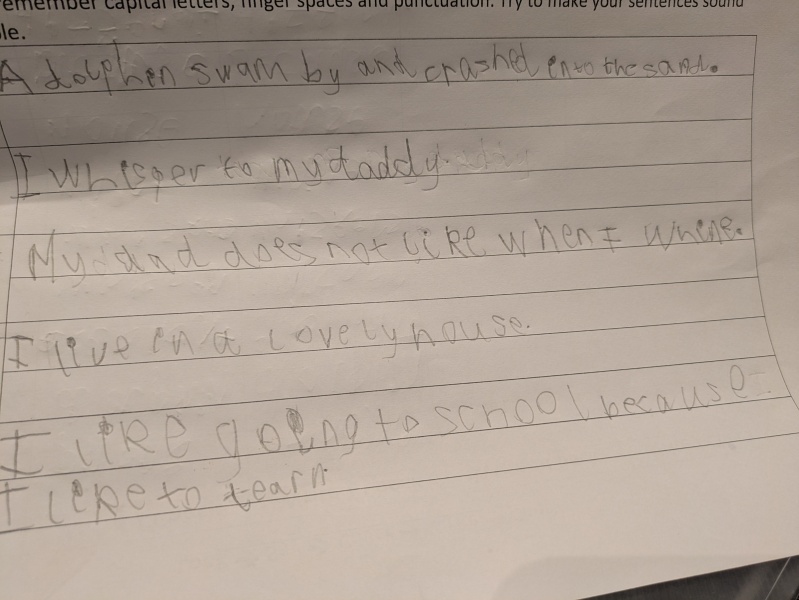 remember capital letters, finger spaces and punctuation. Try to make your sentences sound
le.
A dolphen swam by and crashed ento the sand.
I whisper to my daddy.
My dad does not like when I whine.
I live in a lovely house.
I like going to school because
I like to learn